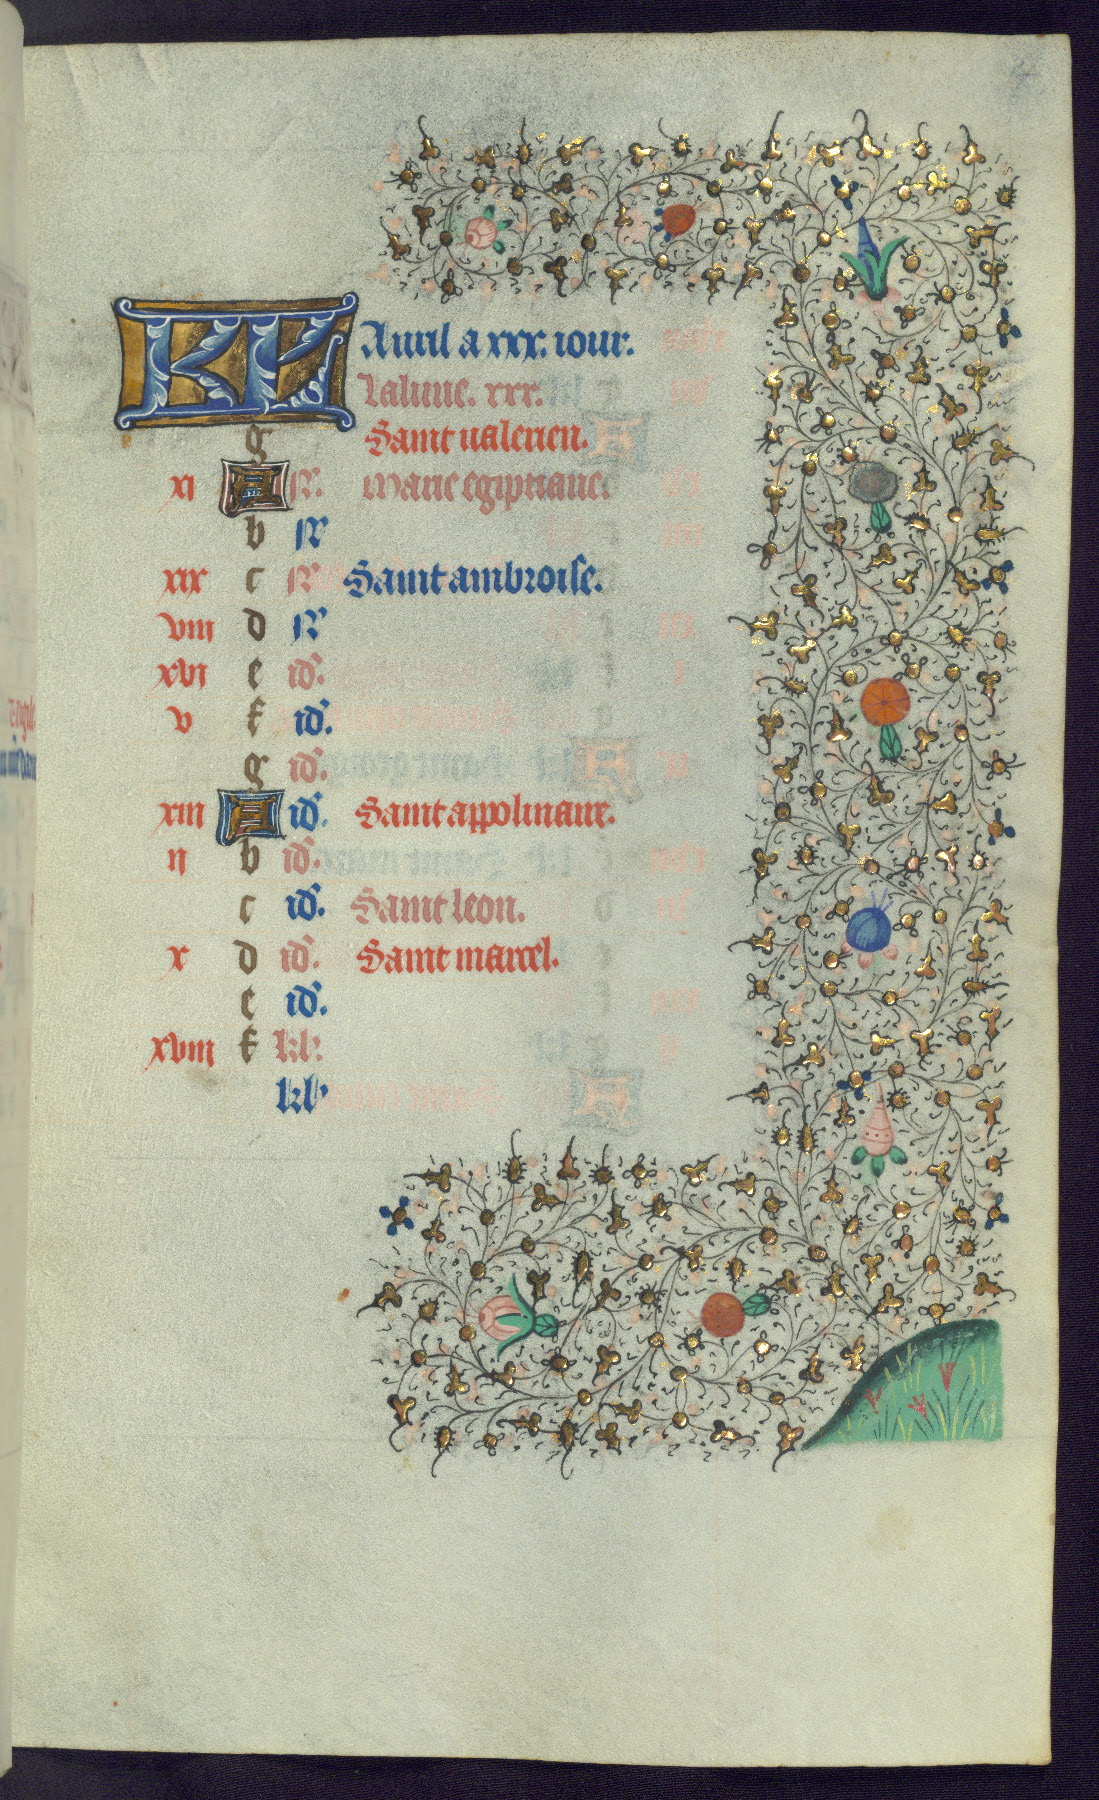 KL Auril a xxx. iour.
La lune. xxx.
g Saint ualerien.
xi A N. marie egiptiane.
b N
xix c N Saint ambroise.
viii d N
xvi e id.
v f id.
g id.
xiii A id. Saint appolinaire.
ii b id.
c id. Saint leon.
x d id. Saint marcel.
e id.
xviii f kl.
kl.